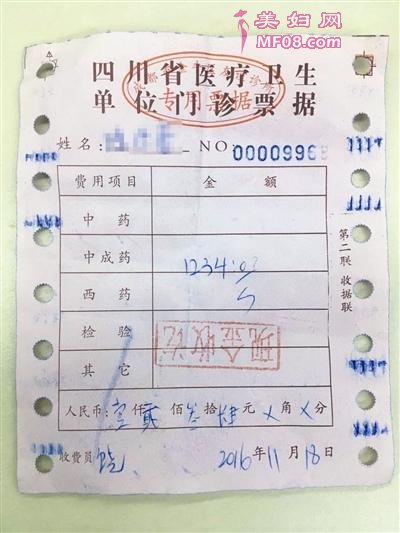 美妇网
MF08.com
四川省医疗卫生
单位门诊票据
专用票据
姓名: NO: 0000996
费用项目 金额
中药
中成药
1234:
西药
检验
现金收讫
其它
第二联 收据联
人民币: 壹仟贰佰叁拾肆元×角×分
收费员 饶 2016年11月18日